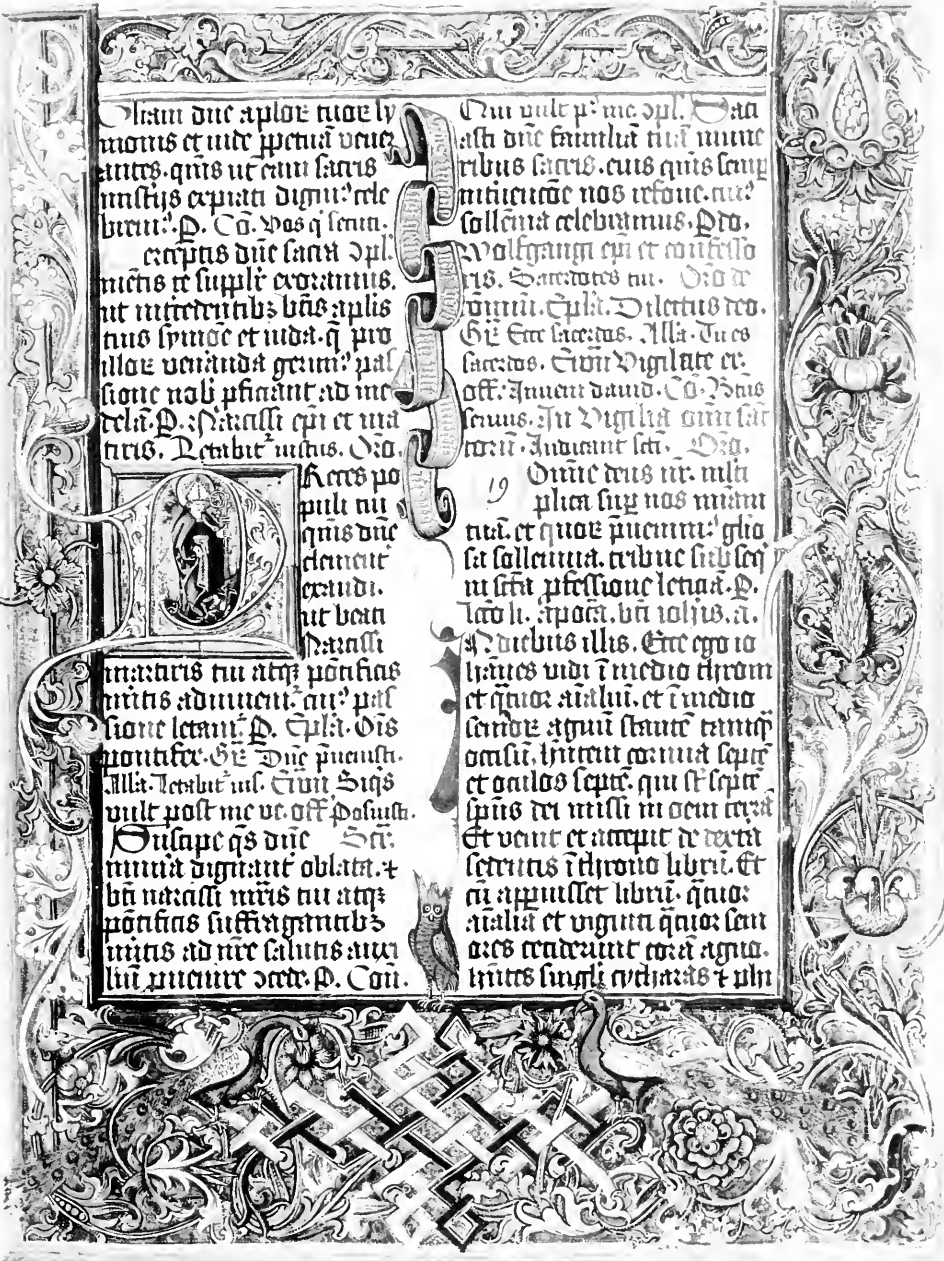 Gloriam dne aplorꝝ tuorꝝ sy
monis et iude ppetuā vener
antes. qms ut eam sacris
mistijs expiati digniꝰ cele
bremꝰ. P. Cō. Vos q secuti.
Perceptis dne sacra ɔpl.
mētis te supplr exoramus.
ut intercedētibꝫ btīs aplis
tuis symōe et iuda. q pro
illorꝝ veneranda gerimꝰ pas
sione nob pficiant ad me
delā. P. Narcissi epi et ma
tiris. Letabitᷣ iustus. Oro.
Preces po
puli tui
quis dne
clement
exaudi.
ut beati
Narcissi
martiris tui atqꝫ pōtificis
mitis ad cuiꝰ pas
sione letamᷣ. P. Epla. Ois
pontifex. Gr. Dne puenisti.
Alla. Letabitᷣ ius. Ewn Siqs
vult post me ve. off Posuisti.
Suscipe qs dne Scr.
munia dignant oblata. ⁊
bti narcissi mris tui atqꝫ
pōtificis suffragantibꝫ
mitis ad nre salutis auxi
lium puenire ɔcede. P. Com.
Qui vult pꝰ me. ɔpl. Saci
asti dne familiā tuā mune
ribus sacris. eius qms semp
int̄uencōe nos refove. cuiꝰ
sollēnia celebramus. P. Dō.
Wolfgangi epi et confesso
ris. Sacerdotes tui. Oro de
cōmuni. Epla. Dilectus deo.
Gr Ecce sacerdos. Alla. Tu es
sacerdos. Ewn Vigilate ex
off. Inveni david. Cō. Btus
servus. In Vigilia oim sāc
torū. Iudicant scti. Oro.
19
Domine deus nr. multi
plica sup nos miam
tuā. et quorꝝ puenimꝰ glio
sa sollennia. tribue subseq
in scta pfessione leticiā. P.
Lcō li. apoca. bti iohīs. a.
In diebus illis. Ecce ego io
hānes vidi ī medio throni
et qtuor aīaliū. et ī medio
seniorꝝ agnū stantē tamqꝫ
occisū. hntem cornua septē
et oculos septē. qui st septē
spus dei missi in oem terrā
Et venit et accepit de dextra
sedentis ī throno librū. Et
cū apuisset librū. qtuor
aīalia et viginti qtuor seni
ores ceciderunt corā agno.
hntes singli cytharas ⁊ phi